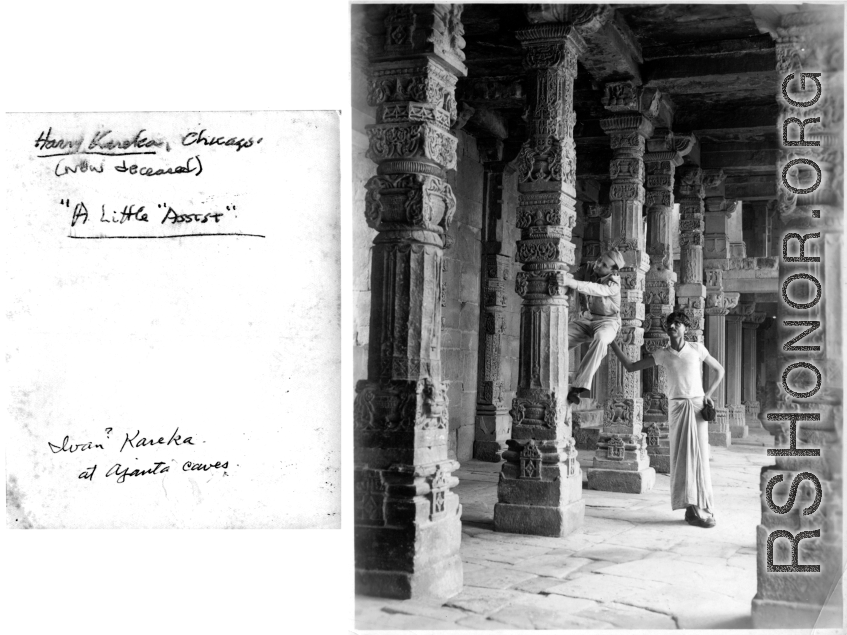 Harry Kareka, Chicago.
(now deceased)
"A Little "Assist"
Ivan? Kareka.
at Ajanta caves.
RSHONOR.ORG